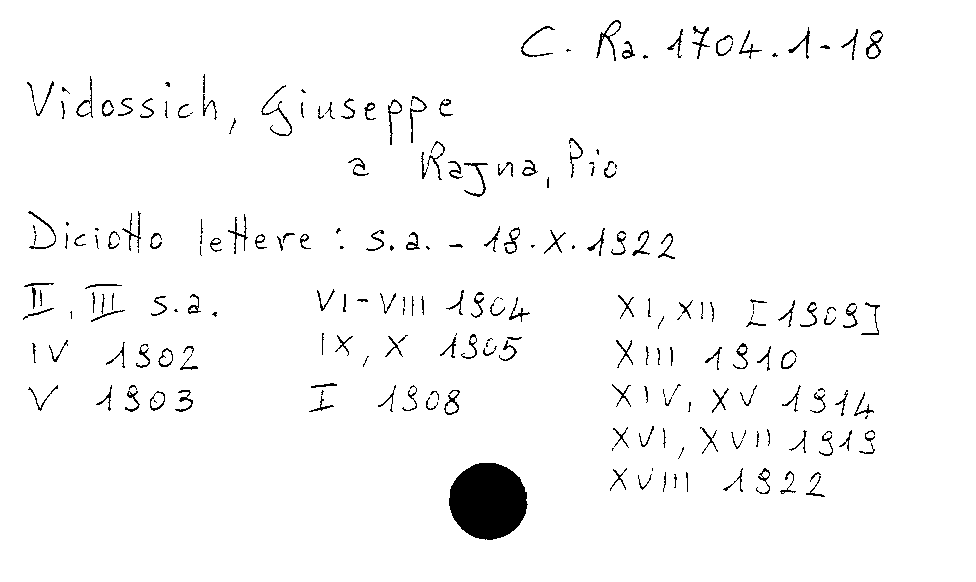 C. Ra. 1704.1-18
Vidossich, Giuseppe
a Rajna, Pio
Diciotto lettere : s.a. - 18.X.1922
II, III s.a.
IV 1902
V 1903
VI-VIII 1904
IX, X 1905
I 1908
XI, XII [1909]
XIII 1910
XIV, XV 1914
XVI, XVII 1919
XVIII 1922